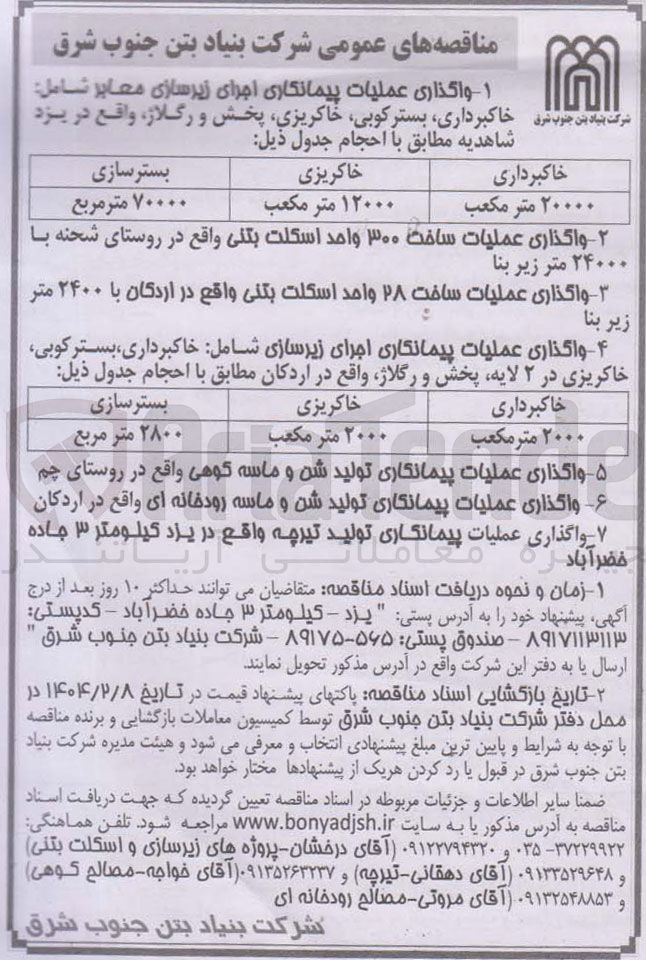 مناقصه‌های عمومی شرکت بنیاد بتن جنوب شرق
شرکت بنیاد بتن جنوب شرق
۱-واگذاری عملیات پیمانکاری اجرای زیرسازی معابر شامل:
خاکبرداری، بسترکوبی، خاکریزی، پخش و رگلاژ، واقع در یزد
شاهدیه مطابق با احجام جدول ذیل:
خاکبرداری خاکریزی بسترسازی
۲۰۰۰۰ متر مکعب ۱۲۰۰۰ متر مکعب ۷۰۰۰۰ مترمربع
۲-واگذاری عملیات ساخت ۳۰۰ واحد اسکلت بتنی واقع در روستای شحنه با
۲۴۰۰۰ متر زیر بنا
۳-واگذاری عملیات ساخت ۲۸ واحد اسکلت بتنی واقع در اردکان با ۲۴۰۰ متر
زیر بنا
۴-واگذاری عملیات پیمانکاری اجرای زیرسازی شامل: خاکبرداری،بسترکوبی،
خاکریزی در ۲ لایه، پخش و رگلاژ، واقع در اردکان مطابق با احجام جدول ذیل:
خاکبرداری خاکریزی بسترسازی
۲۰۰۰ مترمکعب ۲۰۰۰ متر مکعب ۲۸۰۰ متر مربع
AriaTender
۵-واگذاری عملیات پیمانکاری تولید شن و ماسه کوهی واقع در روستای چم
۶- واگذاری عملیات پیمانکاری تولید شن و ماسه رودخانه ای واقع در اردکان
۷-واگذاری عملیات پیمانکاری تولید تیرچه واقع در یزد کیلومتر ۳ جاده
خضرآباد
۱-زمان و نحوه دریافت اسناد مناقصه: متقاضیان می توانند حداکثر ۱۰ روز بعد از درج
آگهی، پیشنهاد خود را به آدرس پستی: " یزد - کیلومتر ۳ جاده خضرآباد - کدپستی:
۸۹۱۷۱۱۳۱۱۳ - صندوق پستی: ۵۶۵-۸۹۱۷۵ - شرکت بنیاد بتن جنوب شرق "
ارسال یا به دفتر این شرکت واقع در آدرس مذکور تحویل نمایند.
۲-تاریخ بازگشایی اسناد مناقصه: پاکتهای پیشنهاد قیمت در تاریخ ۱۴۰۴/۲/۸ در
محل دفتر شرکت بنیاد بتن جنوب شرق توسط کمیسیون معاملات بازگشایی و برنده مناقصه
با توجه به شرایط و پایین ترین مبلغ پیشنهادی انتخاب و معرفی می شود و هیئت مدیره شرکت بنیاد
بتن جنوب شرق در قبول یا رد کردن هریک از پیشنهادها مختار خواهد بود.
ضمنا سایر اطلاعات و جزئیات مربوطه در اسناد مناقصه تعیین گردیده که جهت دریافت اسناد
مناقصه به آدرس مذکور یا به سایت www.bonyadjsh.ir مراجعه شود. تلفن هماهنگی:
۳۷۲۲۹۹۲۲-۰۳۵ و ۰۹۱۲۲۷۹۴۳۲۰ (آقای درخشان-پروژه های زیرسازی و اسکلت بتنی)
و ۰۹۱۳۳۵۲۹۶۴۸ (آقای دهقانی-تیرچه) و ۰۹۱۳۵۲۶۳۲۳۷(آقای خواجه-مصالح کوهی)
و ۰۹۱۳۲۵۴۸۸۵۳ (آقای مروتی-مصالح رودخانه ای
شرکت بنیاد بتن جنوب شرق